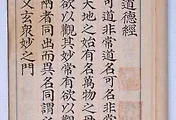 道德經
可道非常道名可名非常
天地之始有名萬物之母
欲以觀其妙常有欲以觀
兩者同出而異名同謂之
又玄衆妙之門